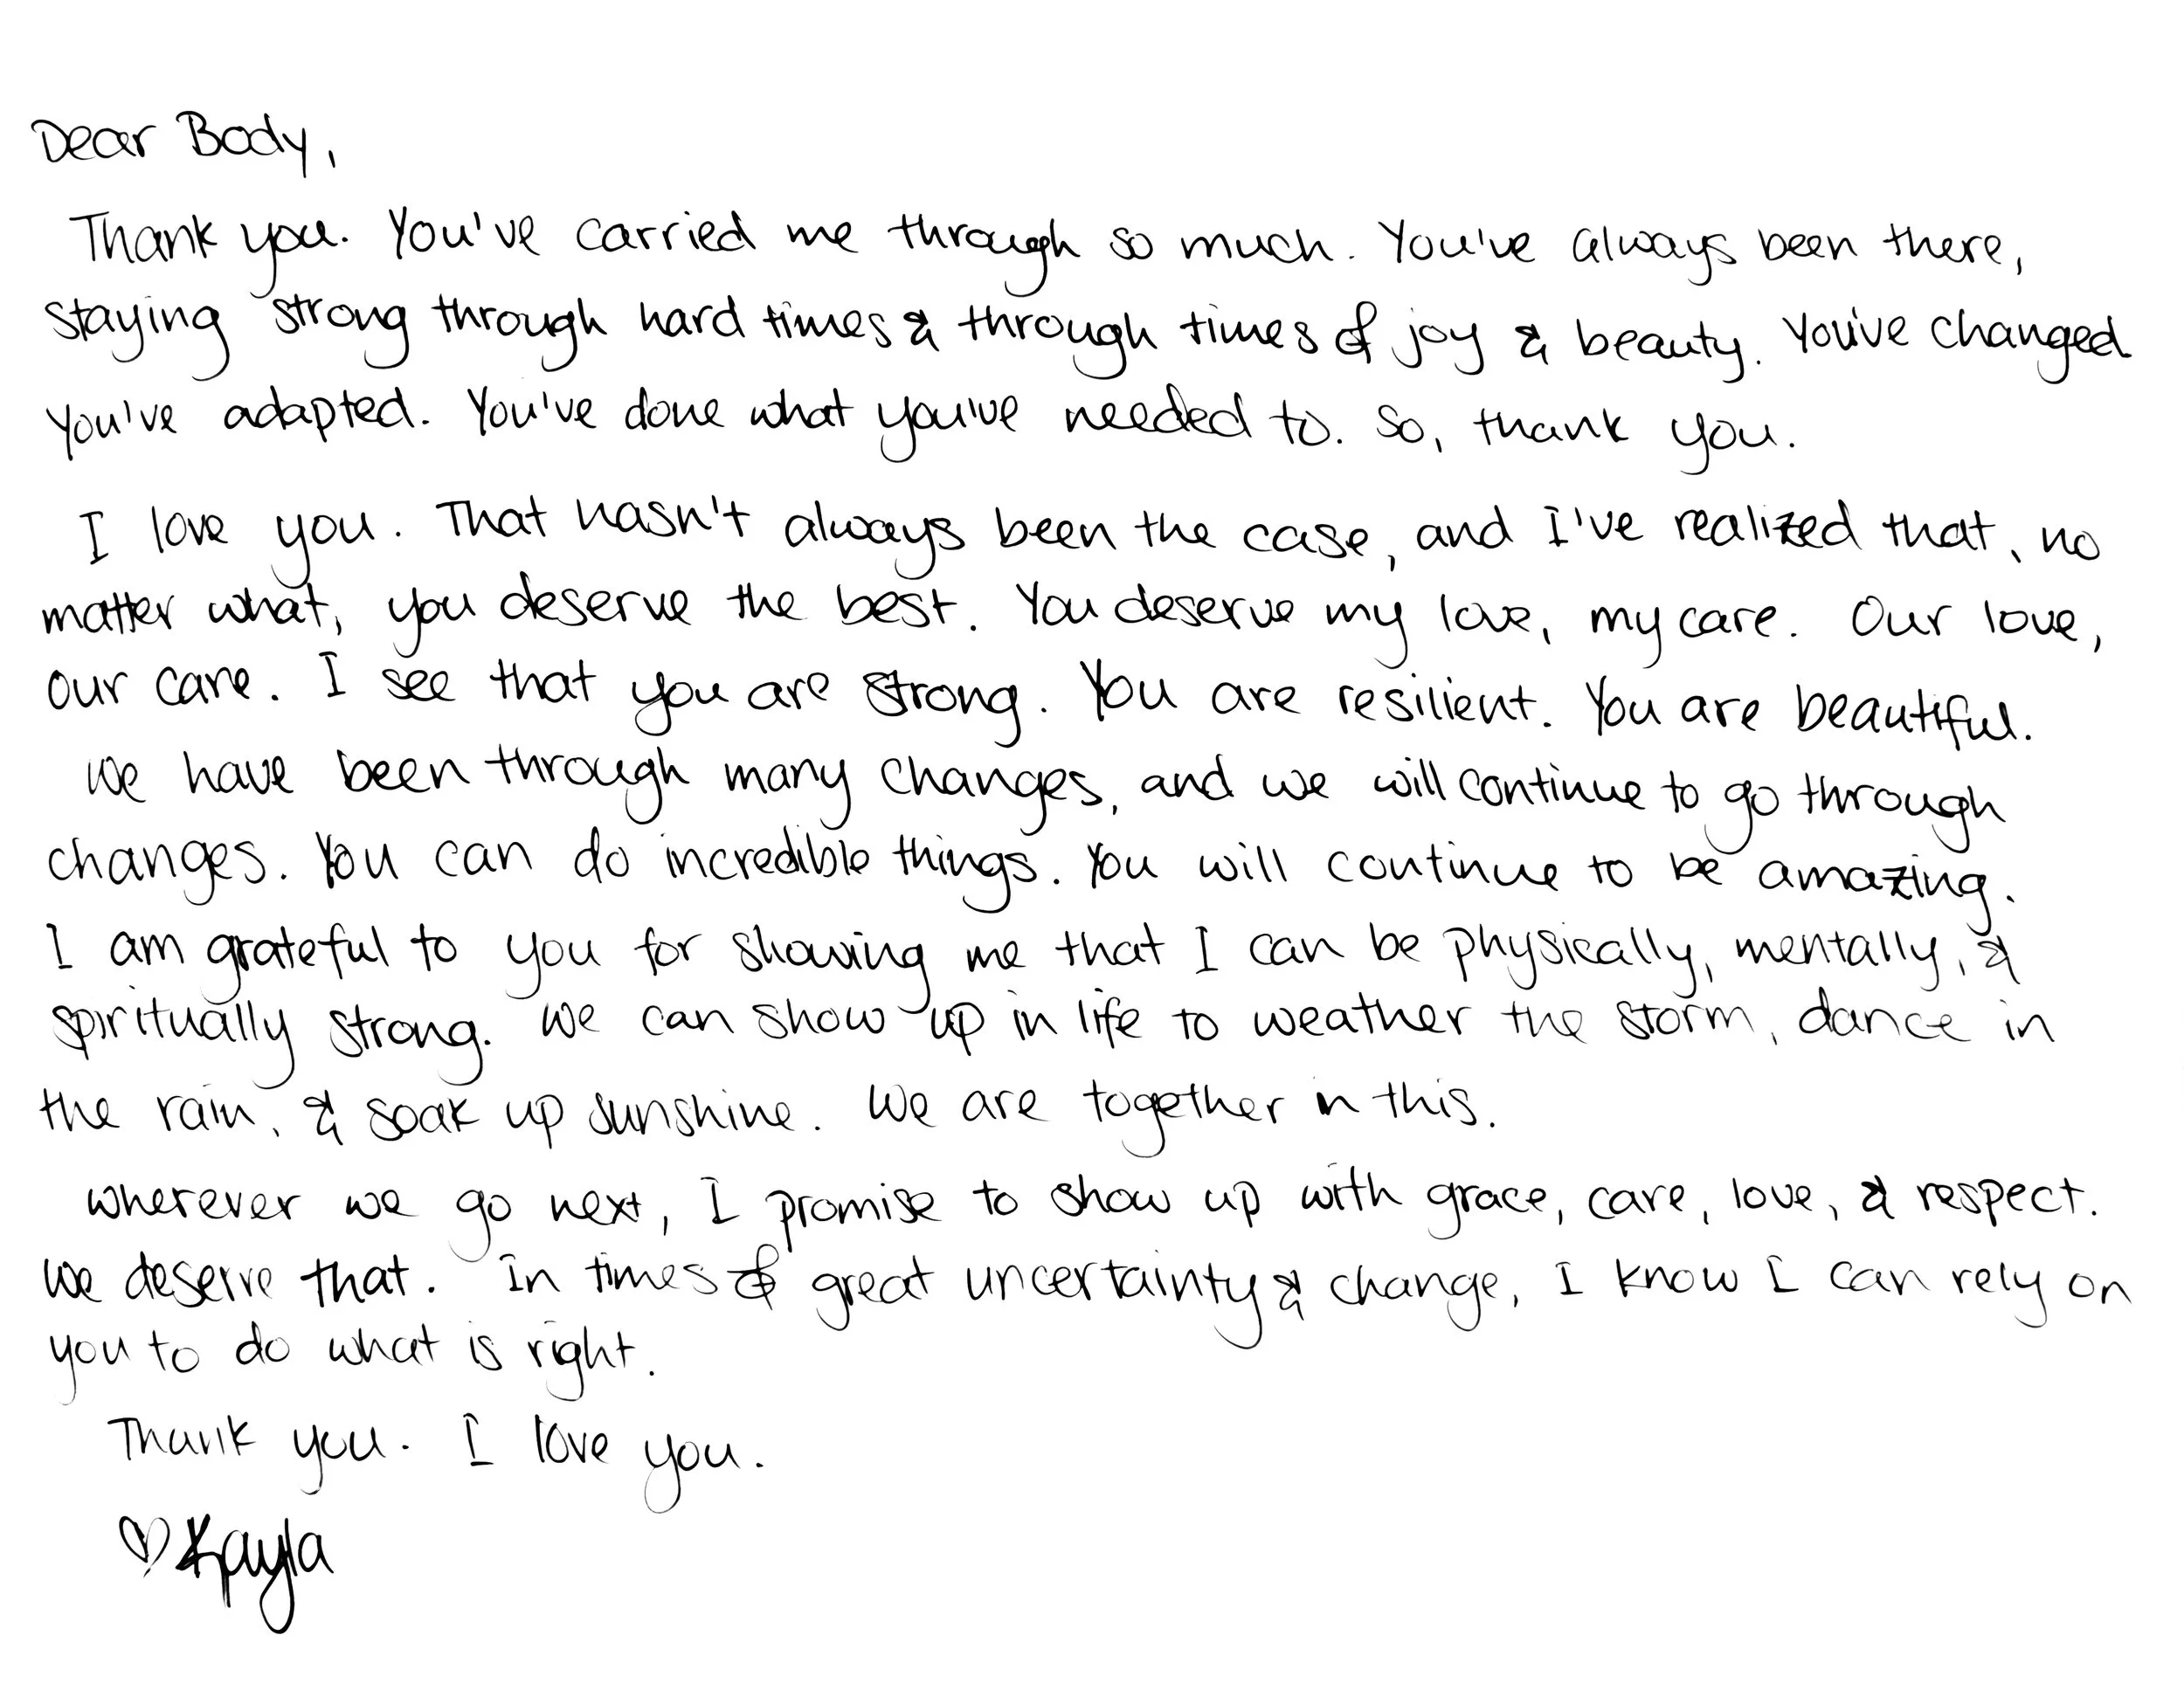 Dear Body,
Thank you. You've carried me through so much. You've always been there,
staying strong through hard times & through times of joy & beauty. You've changed
you've adapted. You've done what you've needed to. So, thank you.
I love you. That hasn't always been the case, and I've realized that, no
matter what, you deserve the best. You deserve my love, my care. Our love,
our care. I see that you are strong. You are resilient. You are beautiful.
We have been through many changes, and we will continue to go through
changes. You can do incredible things. You will continue to be amazing.
I am grateful to you for showing me that I can be physically, mentally, &
spiritually strong. We can show up in life to weather the storm, dance in
the rain, & soak up sunshine. We are together in this.
Wherever we go next, I promise to show up with grace, care, love, & respect.
We deserve that. In times of great uncertainty & change, I know I can rely on
you to do what is right.
Thank you. I love you.
♡ Kayla